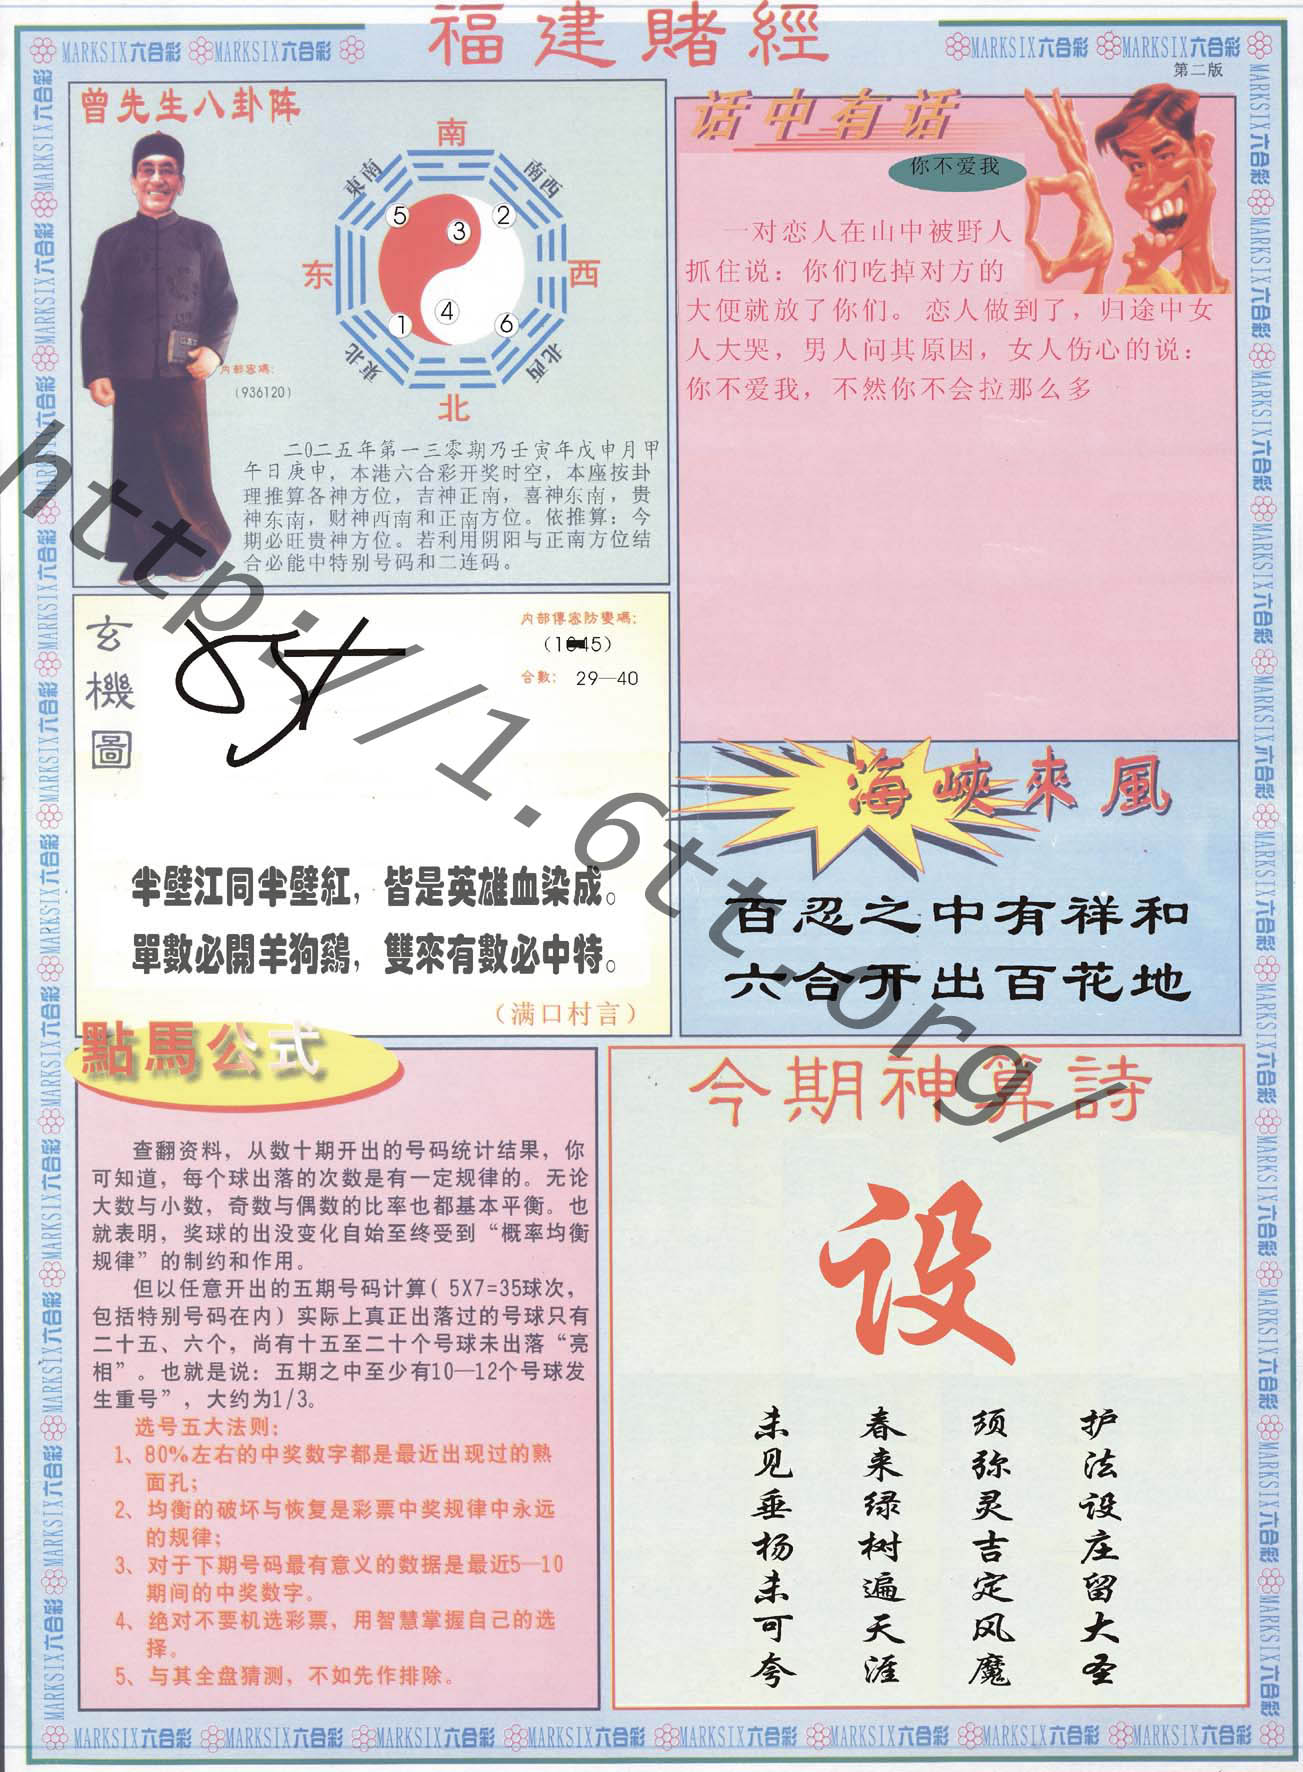 福建賭經
MARKSIX六合彩 MARKSIX六合彩
MARKSIX六合彩 MARKSIX六合彩
第二版
曾先生八卦阵
南
東南
南西
5
3
2
东
西
4
1
6
東北
北西
北
内部密碼:
(936120)
二〇二五年第一三零期乃壬寅年戊申月甲
午日庚申，本港六合彩开奖时空，本座按卦
理推算各神方位，吉神正南，喜神东南，贵
神东南，财神西南和正南方位。依推算：今
期必旺贵神方位。若利用阴阳与正南方位结
合必能中特别号码和二连码。
话中有话
你不爱我
一对恋人在山中被野人
抓住说：你们吃掉对方的
大便就放了你们。恋人做到了，归途中女
人大哭，男人问其原因，女人伤心的说：
你不爱我，不然你不会拉那么多
玄機圖
内部傳密防變碼:
合數: 29—40
半壁江同半壁紅，皆是英雄血染成。
單數必開羊狗鷄，雙來有數必中特。
（满口村言）
海峽來風
百忍之中有祥和
六合开出百花地
點馬公式
查翻资料，从数十期开出的号码统计结果，你
可知道，每个球出落的次数是有一定规律的。无论
大数与小数，奇数与偶数的比率也都基本平衡。也
就表明，奖球的出没变化自始至终受到“概率均衡
规律”的制约和作用。
但以任意开出的五期号码计算(5X7=35球次，
包括特别号码在内)实际上真正出落过的号球只有
二十五、六个，尚有十五至二十个号球未出落“亮
相”。也就是说：五期之中至少有10—12个号球发
生重号”，大约为1/3。
选号五大法则:
1、80%左右的中奖数字都是最近出现过的熟
面孔;
2、均衡的破坏与恢复是彩票中奖规律中永远
的规律;
3、对于下期号码最有意义的数据是最近5—10
期间的中奖数字。
4、绝对不要机选彩票，用智慧掌握自己的选
择。
5、与其全盘猜测，不如先作排除。
今期神算詩
设
护法设庄留大圣
须弥灵吉定风魔
春来绿树遍天涯
未见垂杨未可夸
MARKSIX六合彩 MARKSIX六合彩 MARKSIX六合彩 MARKSIX六合彩 MARKSIX六合彩 MARKSIX六合彩 MARKSIX六合彩 MARKSIX六合彩
http://1.6tt.org/